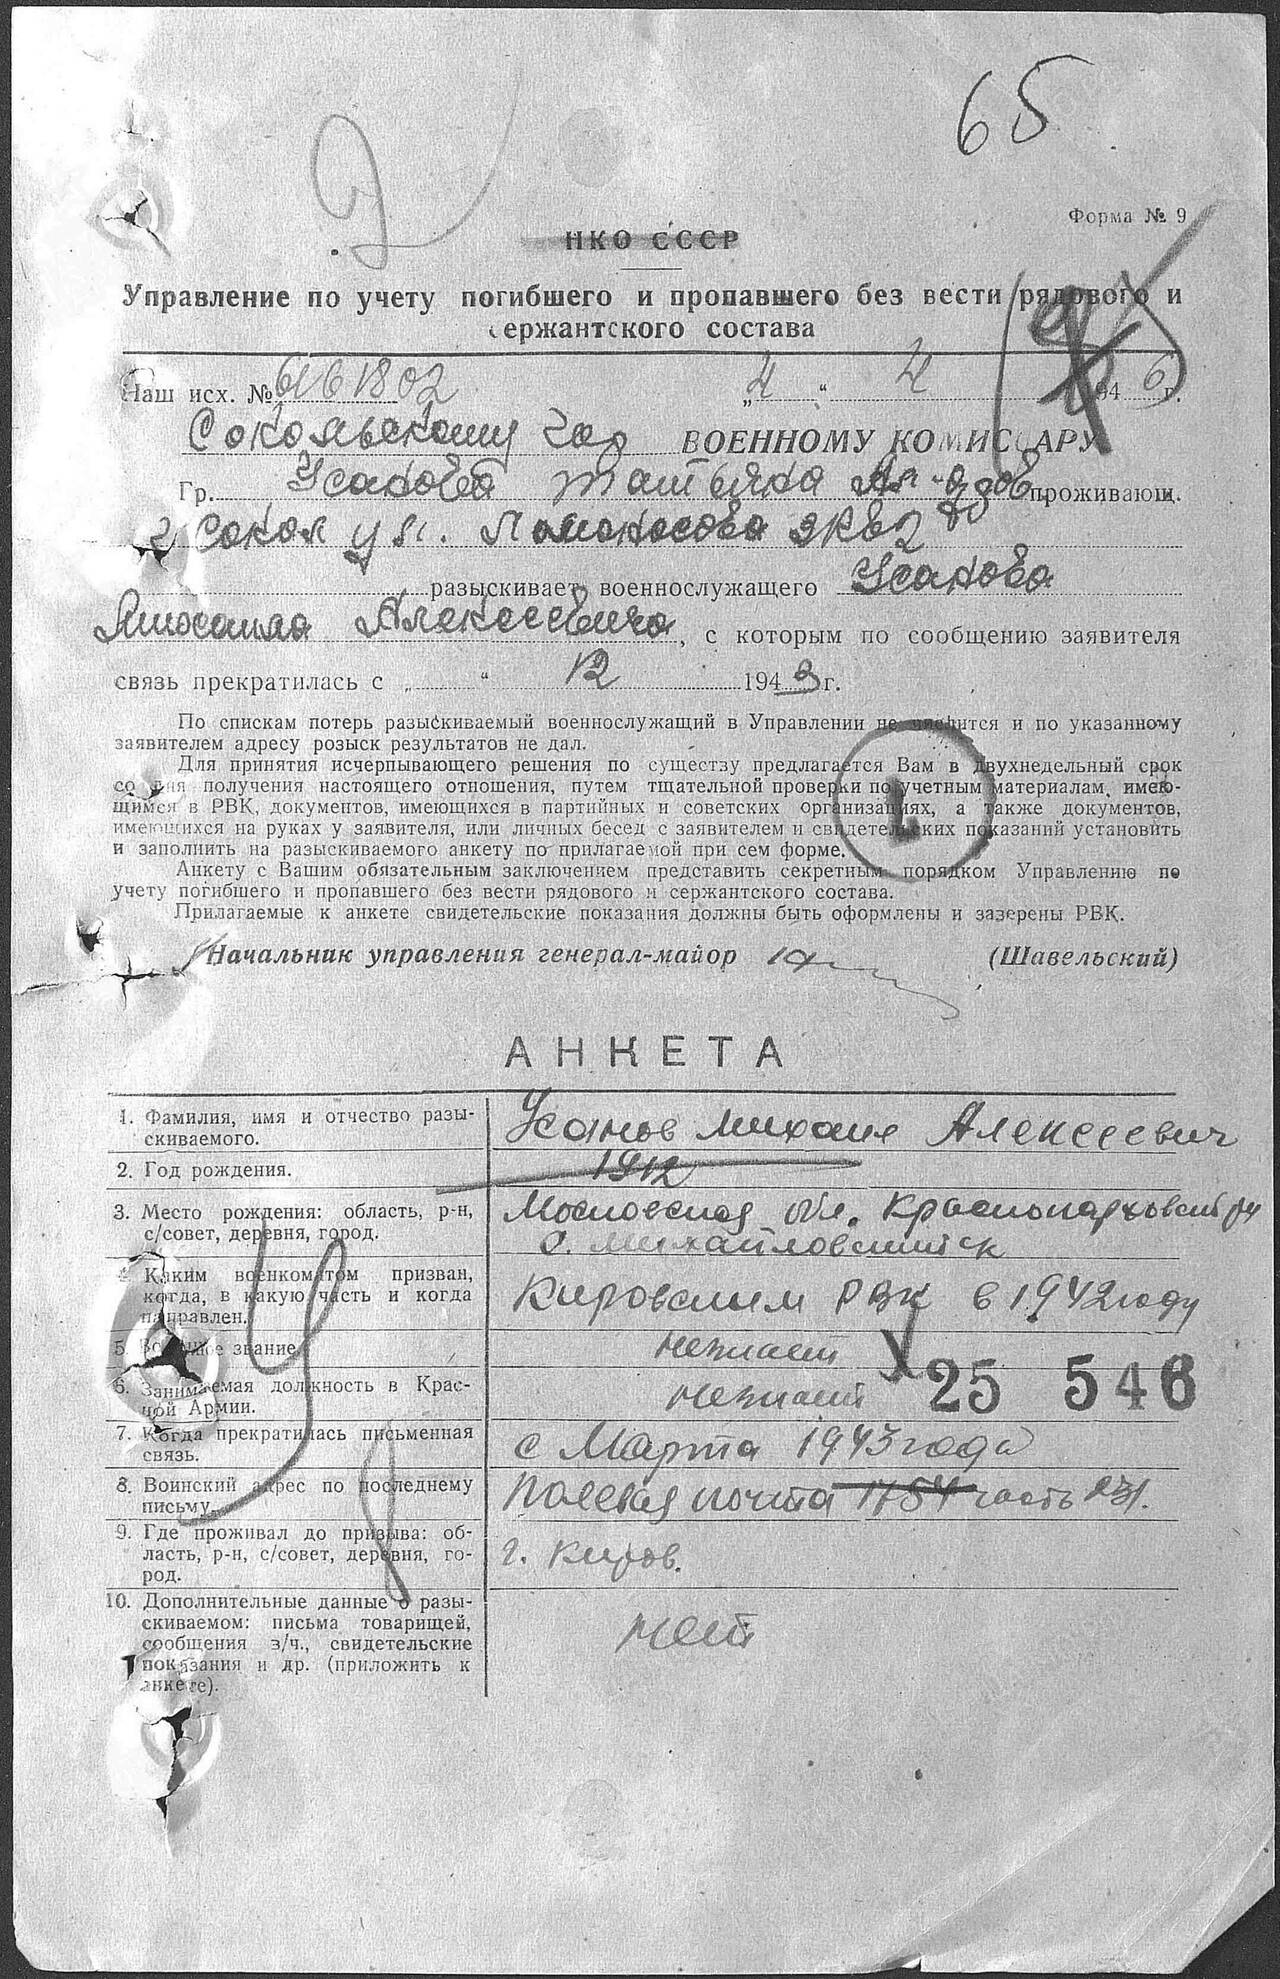 65
Форма № 9
НКО СССР
Управление по учету погибшего и пропавшего без вести рядового и
сержантского состава
Наш исх. № 61802 „4“ 4 1946 г.
Сокольскому гор ВОЕННОМУ КОМИССАРУ
Гр. Усанова Татьяна проживающ.
г Сокол ул. Ломоносова
разыскивает военнослужащего Усанова
Михаила Алексеевича, с которым по сообщению заявителя
связь прекратилась с „ “ 12 1943 г.
По спискам потерь разыскиваемый военнослужащий в Управлении не числится и по указанному
заявителем адресу розыск результатов не дал.
Для принятия исчерпывающего решения по существу предлагается Вам в двухнедельный срок
со дня получения настоящего отношения, путем тщательной проверки по учетным материалам, имею-
щимся в РВК, документов, имеющихся в партийных и советских организациях, а также документов,
имеющихся на руках у заявителя, или личных бесед с заявителем и свидетельских показаний установить
и заполнить на разыскиваемого анкету по прилагаемой при сем форме.
Анкету с Вашим обязательным заключением представить секретным порядком Управлению по
учету погибшего и пропавшего без вести рядового и сержантского состава.
Прилагаемые к анкете свидетельские показания должны быть оформлены и заверены РВК.
Начальник управления генерал-майор (Шавельский)
АНКЕТА
1. Фамилия, имя и отчество разы-
скиваемого.
Усанов Михаил Алексеевич
2. Год рождения.
1912
3. Место рождения: область, р-н,
с/совет, деревня, город.
Московская обл. Краснопахровский р-н
с. Михайловский
4. Каким военкоматом призван,
когда, в какую часть и когда
направлен.
Кировским РВК в 1942 году
5. Военное звание
незнает
6. Занимаемая должность в Крас-
ной Армии.
незнает
25 546
7. Когда прекратилась письменная
связь.
с Марта 1943 года
8. Воинский адрес по последнему
письму.
Полевая почта 1754 часть 231.
9. Где проживал до призыва: об-
ласть, р-н, с/совет, деревня, го-
род.
г. Киров.
10. Дополнительные данные о разы-
скиваемом: письма товарищей,
сообщения в/ч., свидетельские
показания и др. (приложить к
анкете).
нет